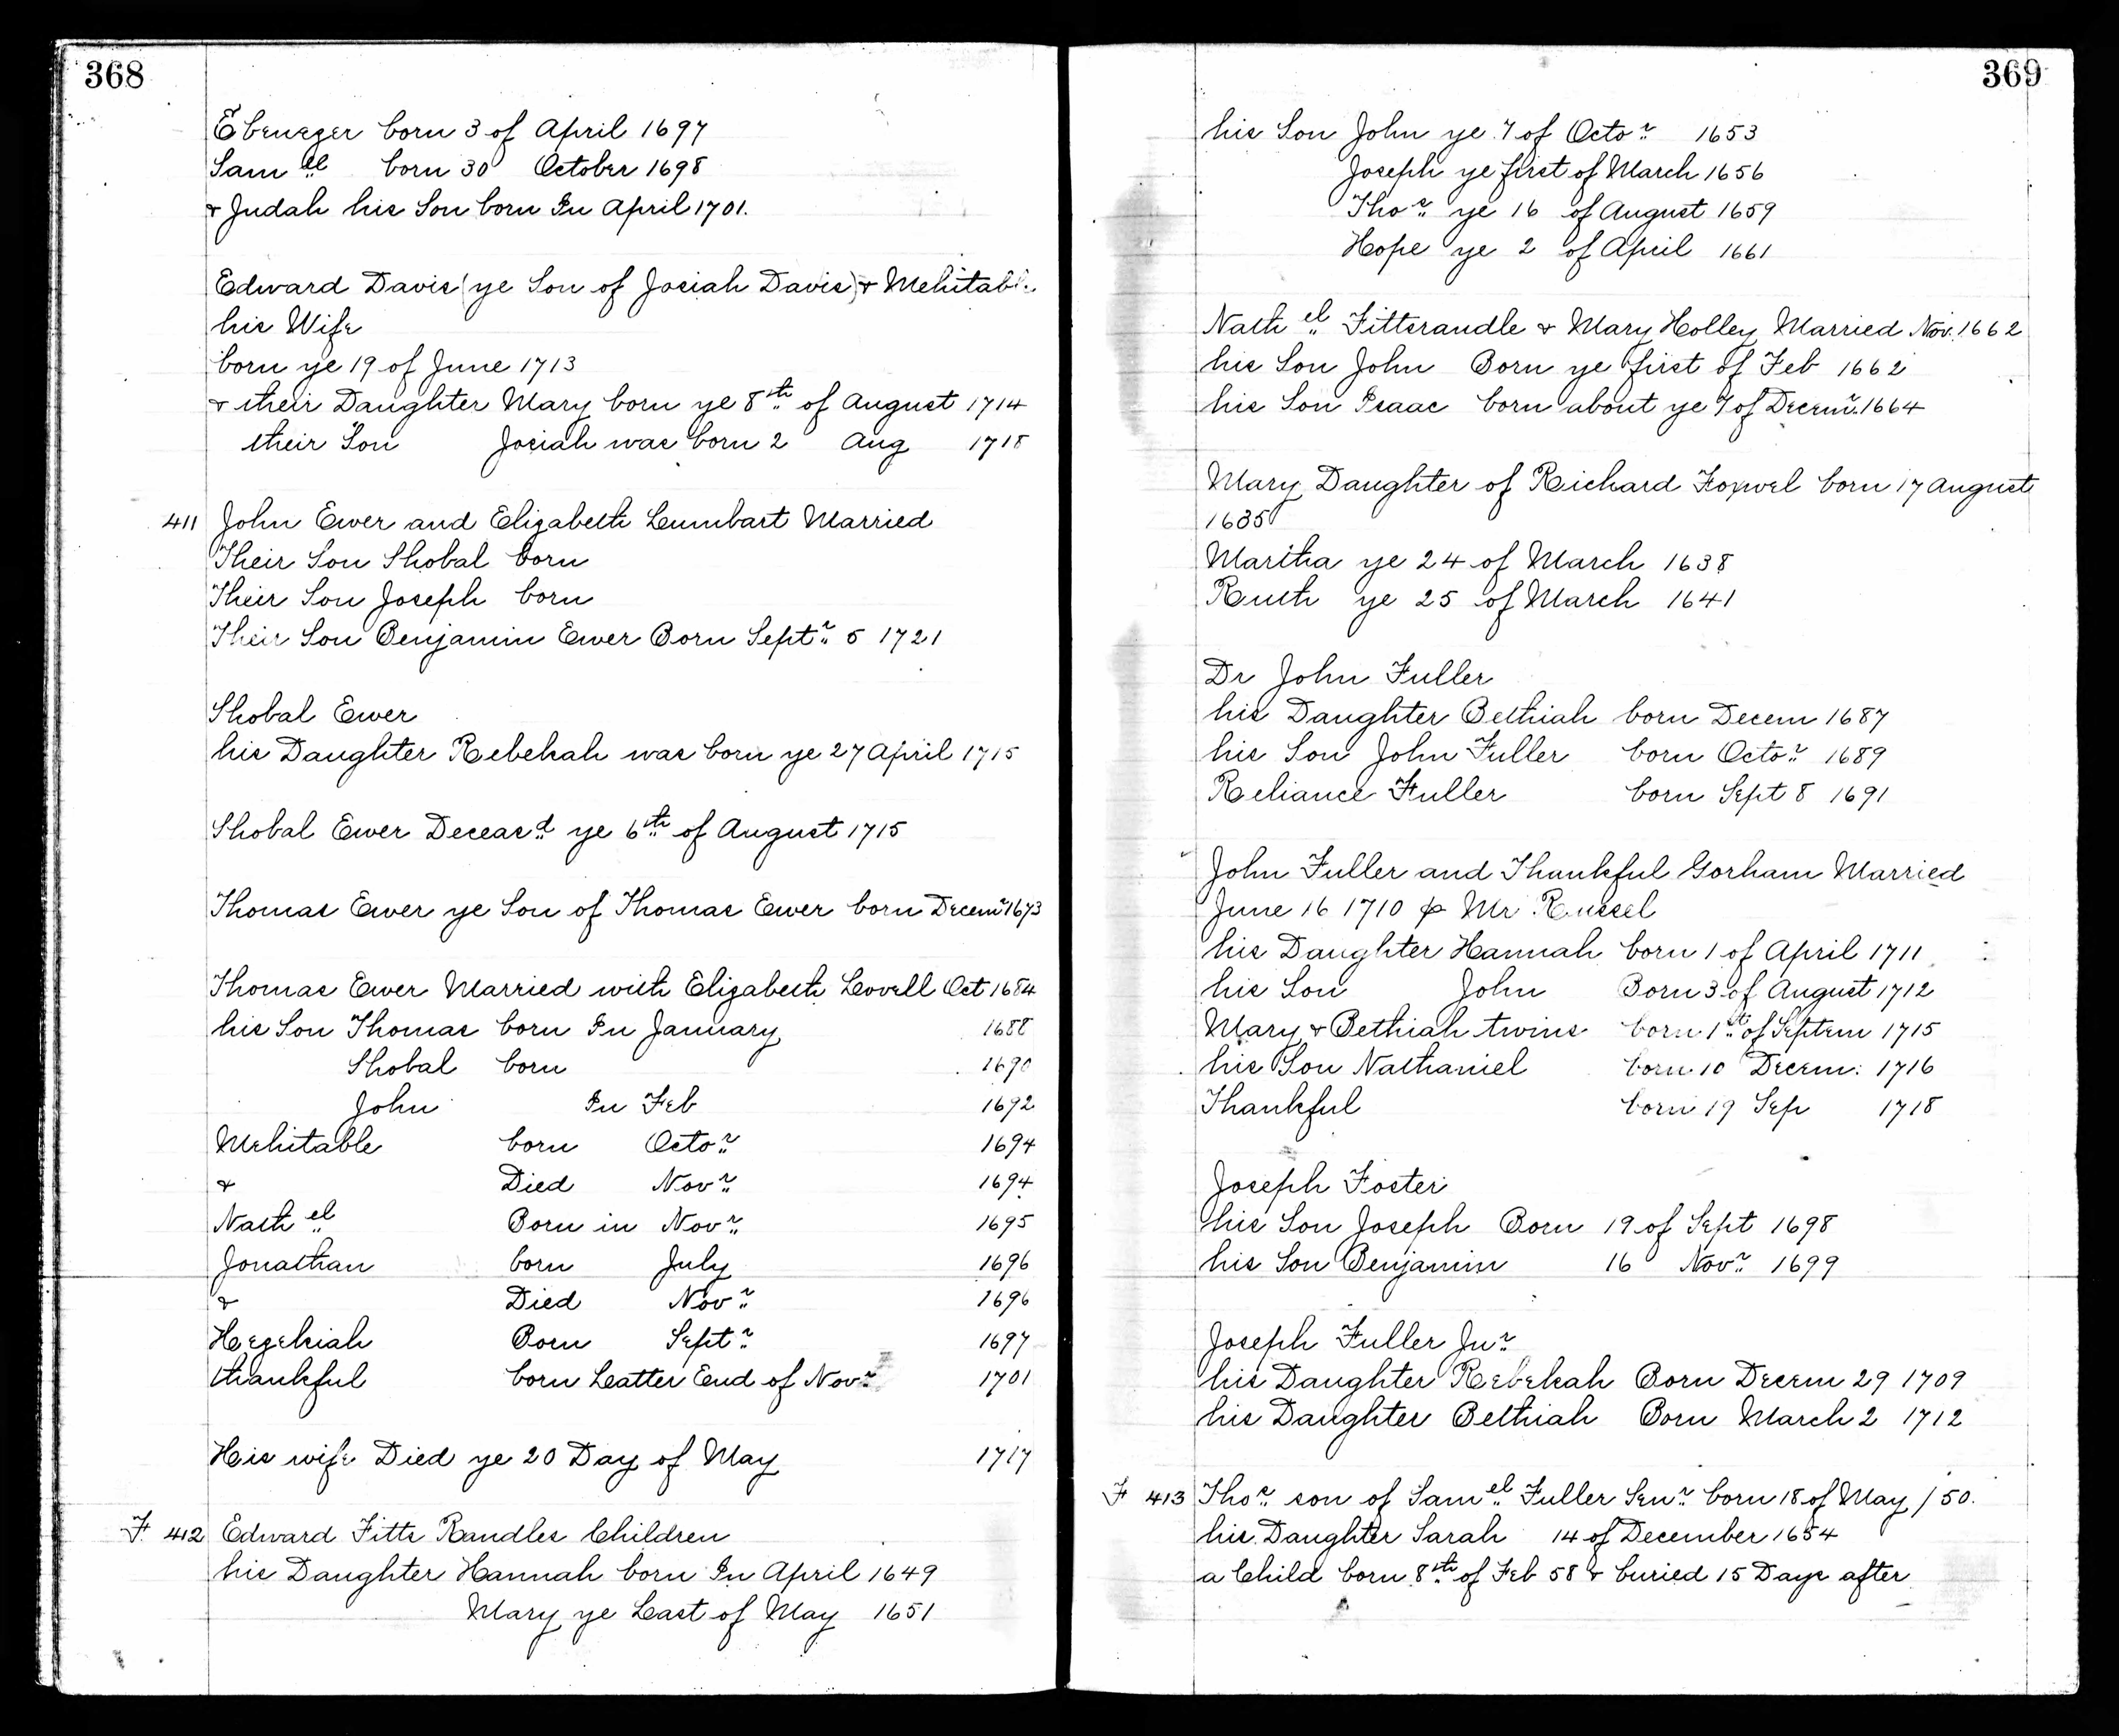 368
Ebenezer born 3 of April 1697
Sam el born 30 October 1698
& Judah his Son born In April 1701.
Edward Davis (ye Son of Josiah Davis) & Mehitabl
his Wife
born ye 19 of June 1713
& their Daughter Mary born ye 8th of August 1714
their Son Josiah was born 2 Aug 1718
411 John Ewer and Elizabeth Lumbart Married
Their Son Shobal born
Their Son Joseph born
Their Son Benjamin Ewer Born Septr 5 1721
Shobal Ewer
his Daughter Rebekah was born ye 27 April 1715
Shobal Ewer Deceasd ye 6th of August 1715
Thomas Ewer ye Son of Thomas Ewer born Decemr 1673
Thomas Ewer Married with Elizabeth Lovell Oct 1684
his Son Thomas born In January 1688
Shobal born 1690
John In Feb 1692
Mehitable born Octor 1694
& Died Novr 1694
Nath el Born in Novr 1695
Jonathan born July 1696
& Died Novr 1696
Hezekiah Born Septr 1697
thankful born Latter End of Novr 1701
His wife Died ye 20 Day of May 1717
F. 412 Edward Fitts Randles Children
his Daughter Hannah born In April 1649
Mary ye Last of May 1651
369
his Son John ye 7 of Octor 1653
Joseph ye first of March 1656
Thos ye 16 of August 1659
Hope ye 2 of April 1661
Nath el Fittsrandle & Mary Holley Married Nov. 1662
his Son John Born ye first of Feb 1662
his Son Isaac born about ye 7 of Decemr. 1664
Mary Daughter of Richard Foxwel born 17 August
1635
Martha ye 24 of March 1638
Ruth ye 25 of March 1641
Dr John Fuller
his Daughter Bethiah born Decem 1687
his Son John Fuller born Octor 1689
Reliance Fuller born Sept 8 1691
John Fuller and Thankful Gorham Married
June 16 1710 p Mr Russel
his Daughter Hannah born 1 of April 1711
his Son John Born 3 of August 1712
Mary & Bethiah twins born 1st of Septem 1715
his Son Nathaniel born 10 Decem: 1716
Thankful born 19 Sep 1718
Joseph Foster
his Son Joseph Born 19 of Sept 1698
his Son Benjamin 16 Novr 1699
Joseph Fuller Junr
his Daughter Rebekah Born Decem 29 1709
his Daughter Bethiah Born March 2 1712
F 413 Thos son of Samel Fuller Senr born 18 of May / 50.
his Daughter Sarah 14 of December 1654
a Child born 8th of Feb 58 & buried 15 Days after